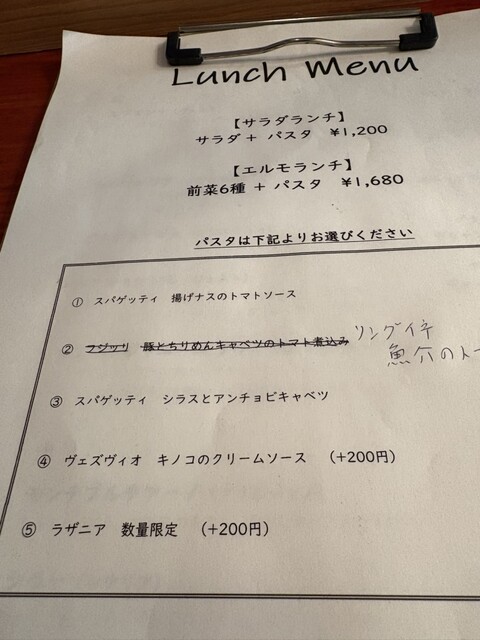 Lunch Menu
【サラダランチ】
サラダ + パスタ ¥1,200
【エルモランチ】
前菜6種 + パスタ ¥1,680
パスタは下記よりお選びください
① スパゲッティ 揚げナスのトマトソース
② フジッリ 豚とちりめんキャベツのトマト煮込み リングイネ
魚介のトー
③ スパゲッティ シラスとアンチョビキャベツ
④ ヴェズヴィオ キノコのクリームソース (+200円)
⑤ ラザニア 数量限定 (+200円)